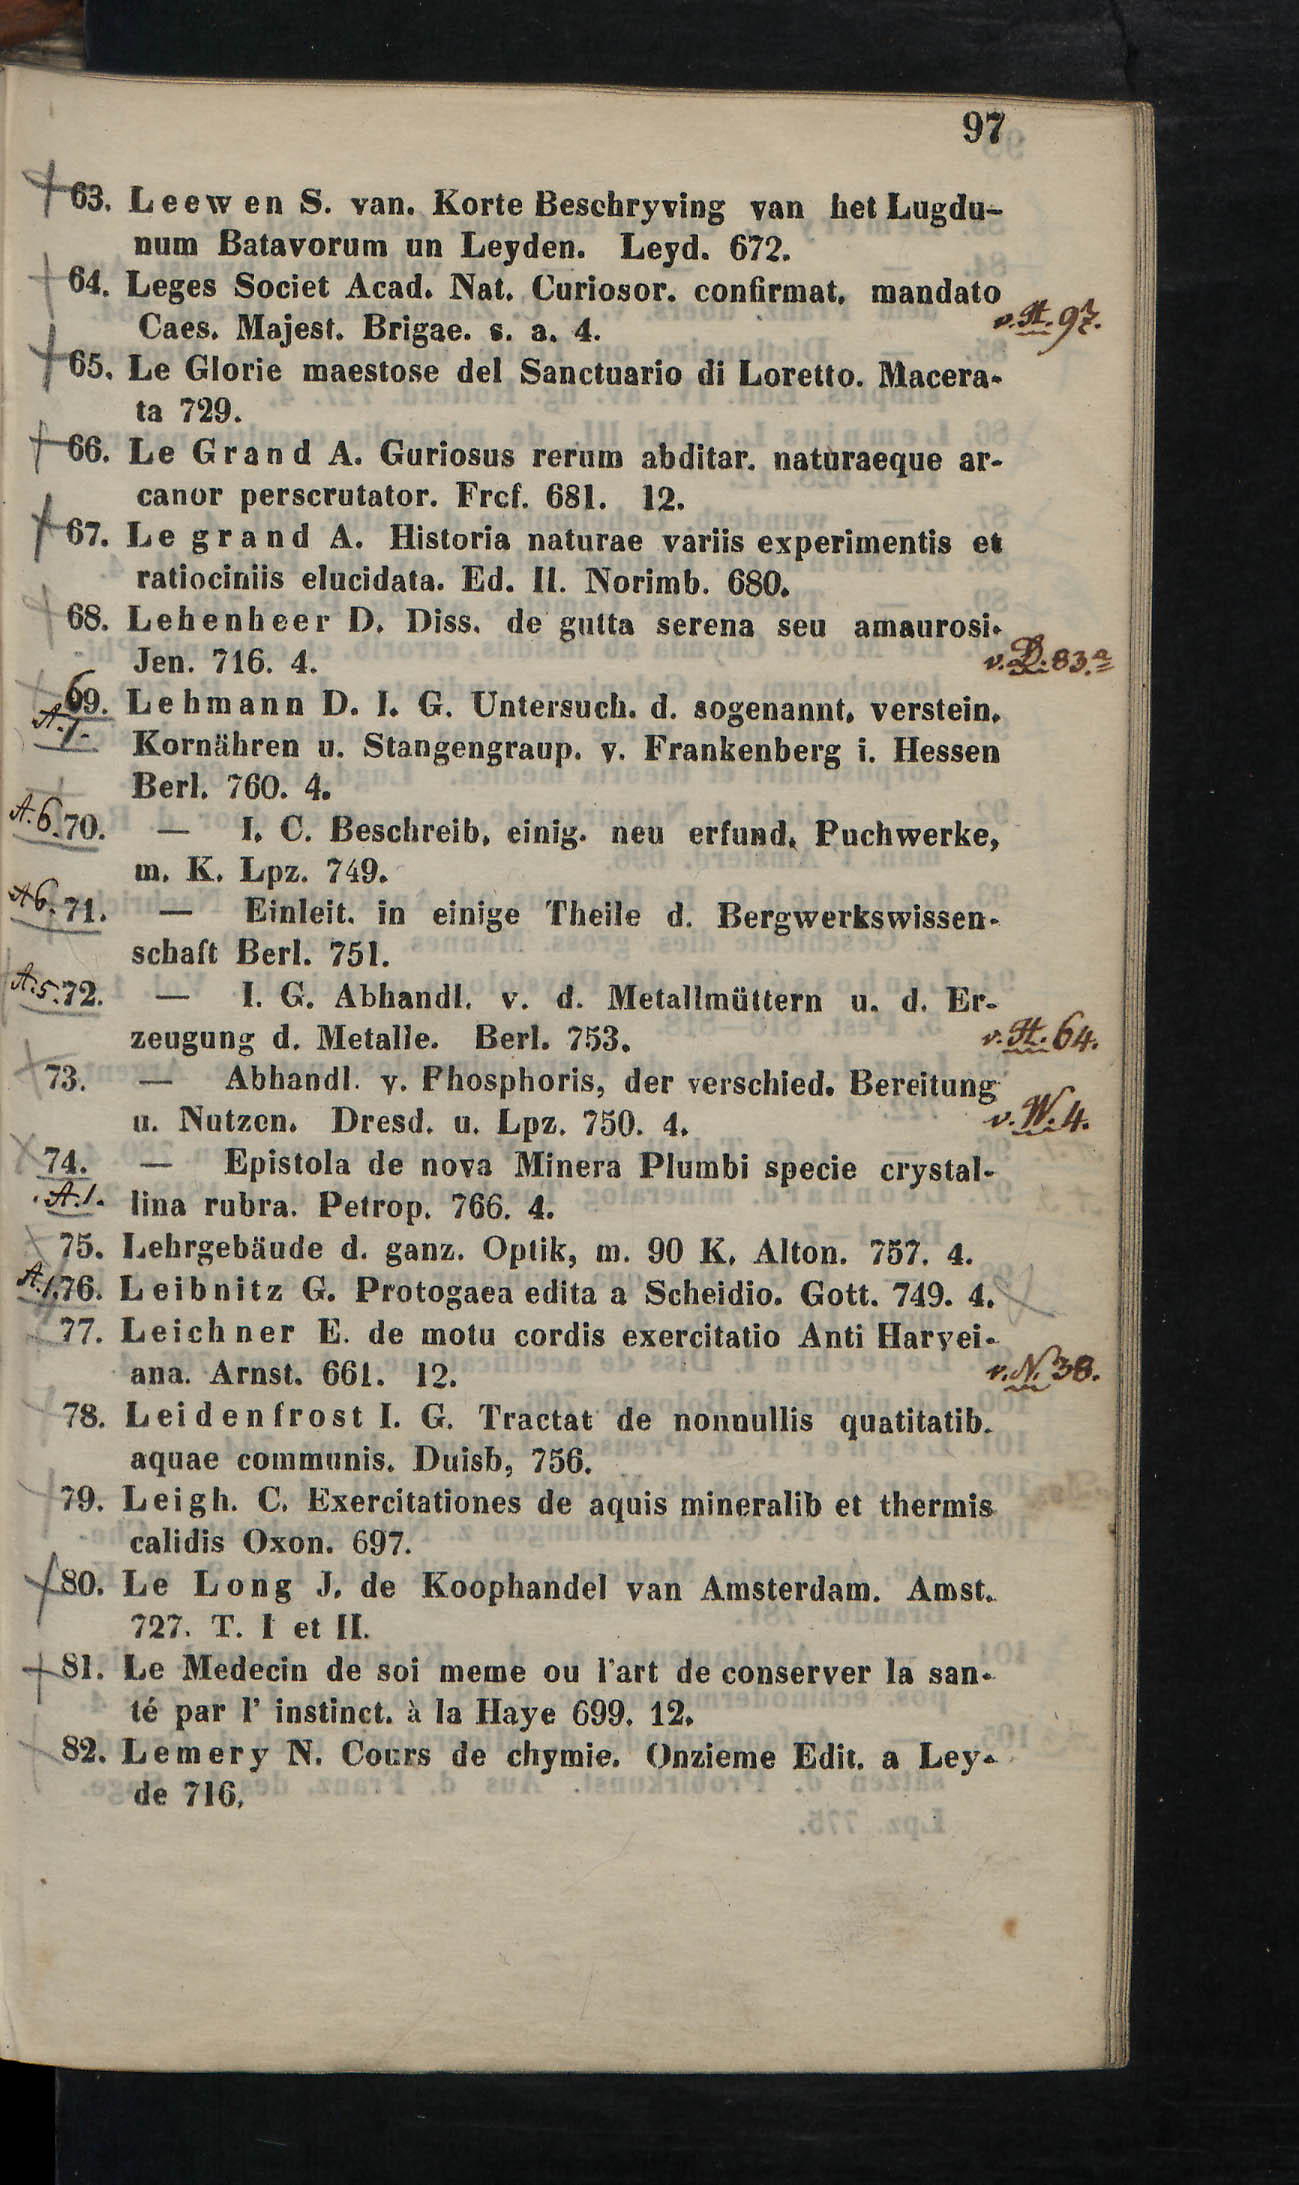 97
63. Leewen S. van. Korte Beschryving van het Lugdu-
num Batavorum un Leyden. Leyd. 672.
64. Leges Societ Acad. Nat. Curiosor. confirmat. mandato
Caes. Majest. Brigae. s. a. 4. v. A. 97.
65. Le Glorie maestose del Sanctuario di Loretto. Macera-
ta 729.
66. Le Grand A. Guriosus rerum abditar. naturaeque ar-
canor perscrutator. Frcf. 681. 12.
67. Le grand A. Historia naturae variis experimentis et
ratiociniis elucidata. Ed. II. Norimb. 680.
68. Lehenheer D. Diss. de gutta serena seu amaurosi.
Jen. 716. 4. v. D. 83.a
69. Lehmann D. I. G. Untersuch. d. sogenannt. verstein.
A. 1. Kornähren u. Stangengraup. v. Frankenberg i. Hessen
Berl. 760. 4.
A. 6. 70. — I. C. Beschreib. einig. neu erfund. Puchwerke,
m. K. Lpz. 749.
A 6. 71. — Einleit. in einige Theile d. Bergwerkswissen-
schaft Berl. 751.
A. 5. 72. — I. G. Abhandl. v. d. Metallmüttern u. d. Er-
zeugung d. Metalle. Berl. 753. v. H. 64.
73. — Abhandl. v. Phosphoris, der verschied. Bereitung
u. Nutzen. Dresd. u. Lpz. 750. 4. v. W. 4.
74. — Epistola de nova Minera Plumbi specie crystal-
A. 1. lina rubra. Petrop. 766. 4.
75. Lehrgebäude d. ganz. Optik, m. 90 K. Alton. 757. 4.
A. 1. 76. Leibnitz G. Protogaea edita a Scheidio. Gott. 749. 4.
77. Leichner E. de motu cordis exercitatio Anti Harvei-
ana. Arnst. 661. 12. v. N. 38.
78. Leidenfrost I. G. Tractat de nonnullis quatitatib.
aquae communis. Duisb, 756.
79. Leigh. C. Exercitationes de aquis mineralib et thermis
calidis Oxon. 697.
80. Le Long J. de Koophandel van Amsterdam. Amst.
727. T. I et II.
81. Le Medecin de soi meme ou l'art de conserver la san-
té par l' instinct. à la Haye 699. 12.
82. Lemery N. Cours de chymie. Onzieme Edit. a Ley-
de 716.